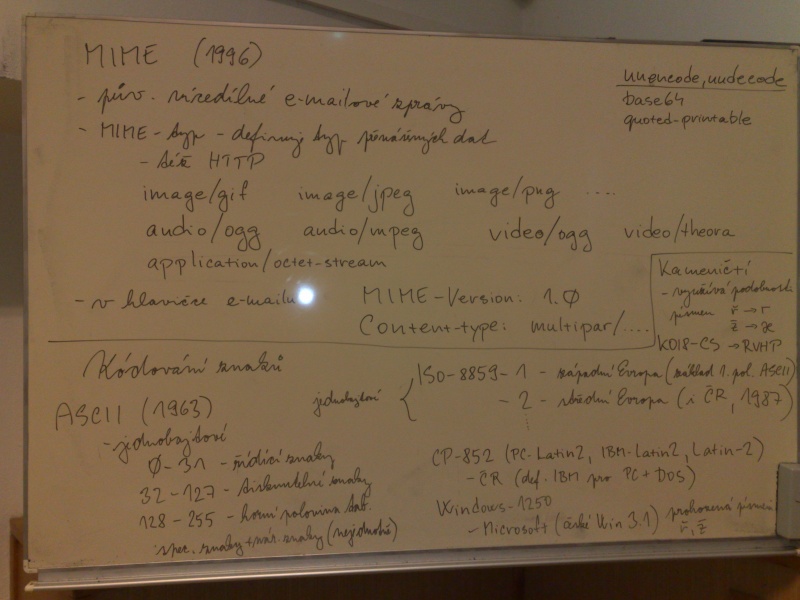 MIME (1996)
- pův. vícedílné e-mailové zprávy
- MIME-typ - definuj typ přenášených dat
- též HTTP
image/gif image/jpeg image/png ....
audio/ogg audio/mpeg video/ogg video/theora
application/octet-stream
- v hlavičce e-mailu MIME-Version: 1.0
Content-type: multipar/....
uuencode, uudecode
base64
quoted-printable
Kameničtí
- využívá podobnosti
písmen ř → r
ž → z
KOI8-CS → RVHP
Kódování znaků
ASCII (1963)
- jednobajtové
0-31 - řídící znaky
32-127 - tisknutelné znaky
128-255 - horní polovina tab.
spec. znaky + nár. znaky (nejednotné)
jednobajtové
ISO-8859-1 - západní Evropa (základ 1. pol. ASCII)
- 2 - střední Evropa (i ČR, 1987)
CP-852 (PC-Latin2, IBM-Latin2, Latin-2)
- ČR (def. IBM pro PC + DOS)
Windows-1250
- Microsoft (české Win 3.1) prohozená písmena